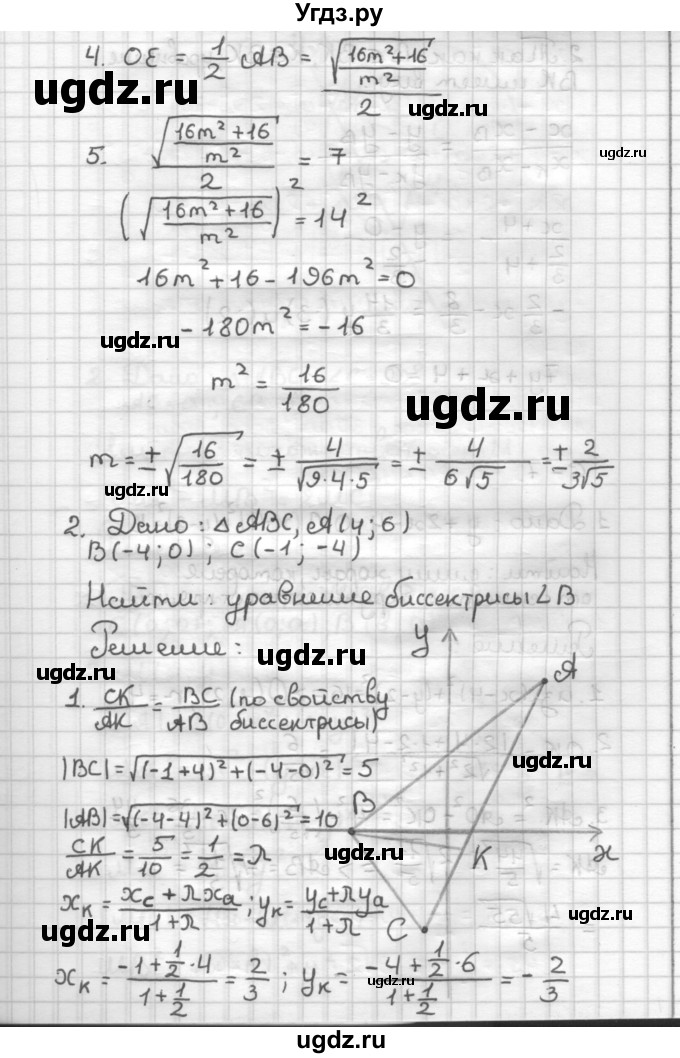 Угдз.ру
4. OE = 1/2 AB = √((16m²+16)/m²)/2
ugdz.ru
5. √((16m²+16)/m²)/2 = 7
ugdz.ru
(√((16m²+16)/m²))² = 14²
16m²+16-196m²=0
ugdz.ru
-180m² = -16
m² = 16/180
ugdz.ru
m = ±√(16/180) = ± 4/√(9·4·5) = ± 4/(6√5) = ± 2/(3√5)
ugdz.ru
2. Дано: △ABC, A(4;6)
B(-4;0); C(-1;-4)
Найти: уравнение биссектрисы ∠B
Решение:
ugdz.ru
y
A
ugdz.ru
1. CK/AK = BC/AB (по свойству
биссектрисы)
|BC|=√((-1+4)²+(-4-0)²)=5
ugdz.ru
B
|AB|=√((-4-4)²+(0-6)²)=10
ugdz.ru
K
x
CK/AK = 5/10 = 1/2 = λ
x_K = (x_C+λx_a)/(1+λ); y_K = (y_C+λy_a)/(1+λ)
C
ugdz.ru
ugdz.ru
x_K = (-1+1/2·4)/(1+1/2) = 2/3; y_K = (-4+1/2·6)/(1+1/2) = -2/3
ugdz.ru
ugdz.ru